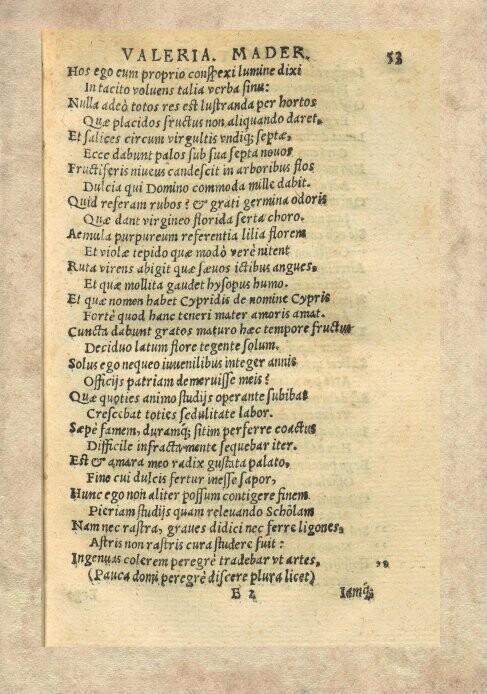 VALERIA. MADER. 53
Hos ego cum proprio conspexi lumine dixi
In tacito voluens talia verba sinu:
Nulla adeò totos res est lustranda per hortos
Quæ placidos fructus non aliquando daret,
Et salices circum virgultis vndiq; septæ,
Ecce dabunt palos sub sua septa nouos
Fructiferis niueus candescit in arboribus flos
Dulcia qui Domino commoda mille dabit.
Quid referam rubos? & grati germina odoris
Quæ dant virgineo florida serta choro.
Aemula purpureum referentia lilia florem
Et violæ tepido quæ modò verè nitent
Ruta virens abigit quæ sæuos ictibus angues,
Et quæ mollita gaudet hysopus humo.
Et quæ nomen habet Cypridis de nomine Cypris
Fortè quod hanc teneri mater amoris amat.
Cuncta dabunt gratos maturo hæc tempore fructus
Deciduo latum flore tegente solum.
Solus ego nequeo iuuenilibus integer annis
Officijs patriam demeruisse meis?
Quæ quoties animo studijs operante subibat
Crescebat toties sedulitate labor.
Sæpè famem, duramq; sitim perferre coactus
Difficile infracta mente sequebar iter.
Est & amara meo radix gustata palato,
Fine cui dulcis fertur inesse sapor,
Hunc ego non aliter possum contigere finem
Pieriam studijs quam releuando Schölam
Nam nec rastra, graues didici nec ferre ligones,
Astris non rastris cura studere fuit:
Ingenuas colerem peregrè tradebar vt artes,
(Pauca domi peregrè discere plura licet)
E 2 Iamq;